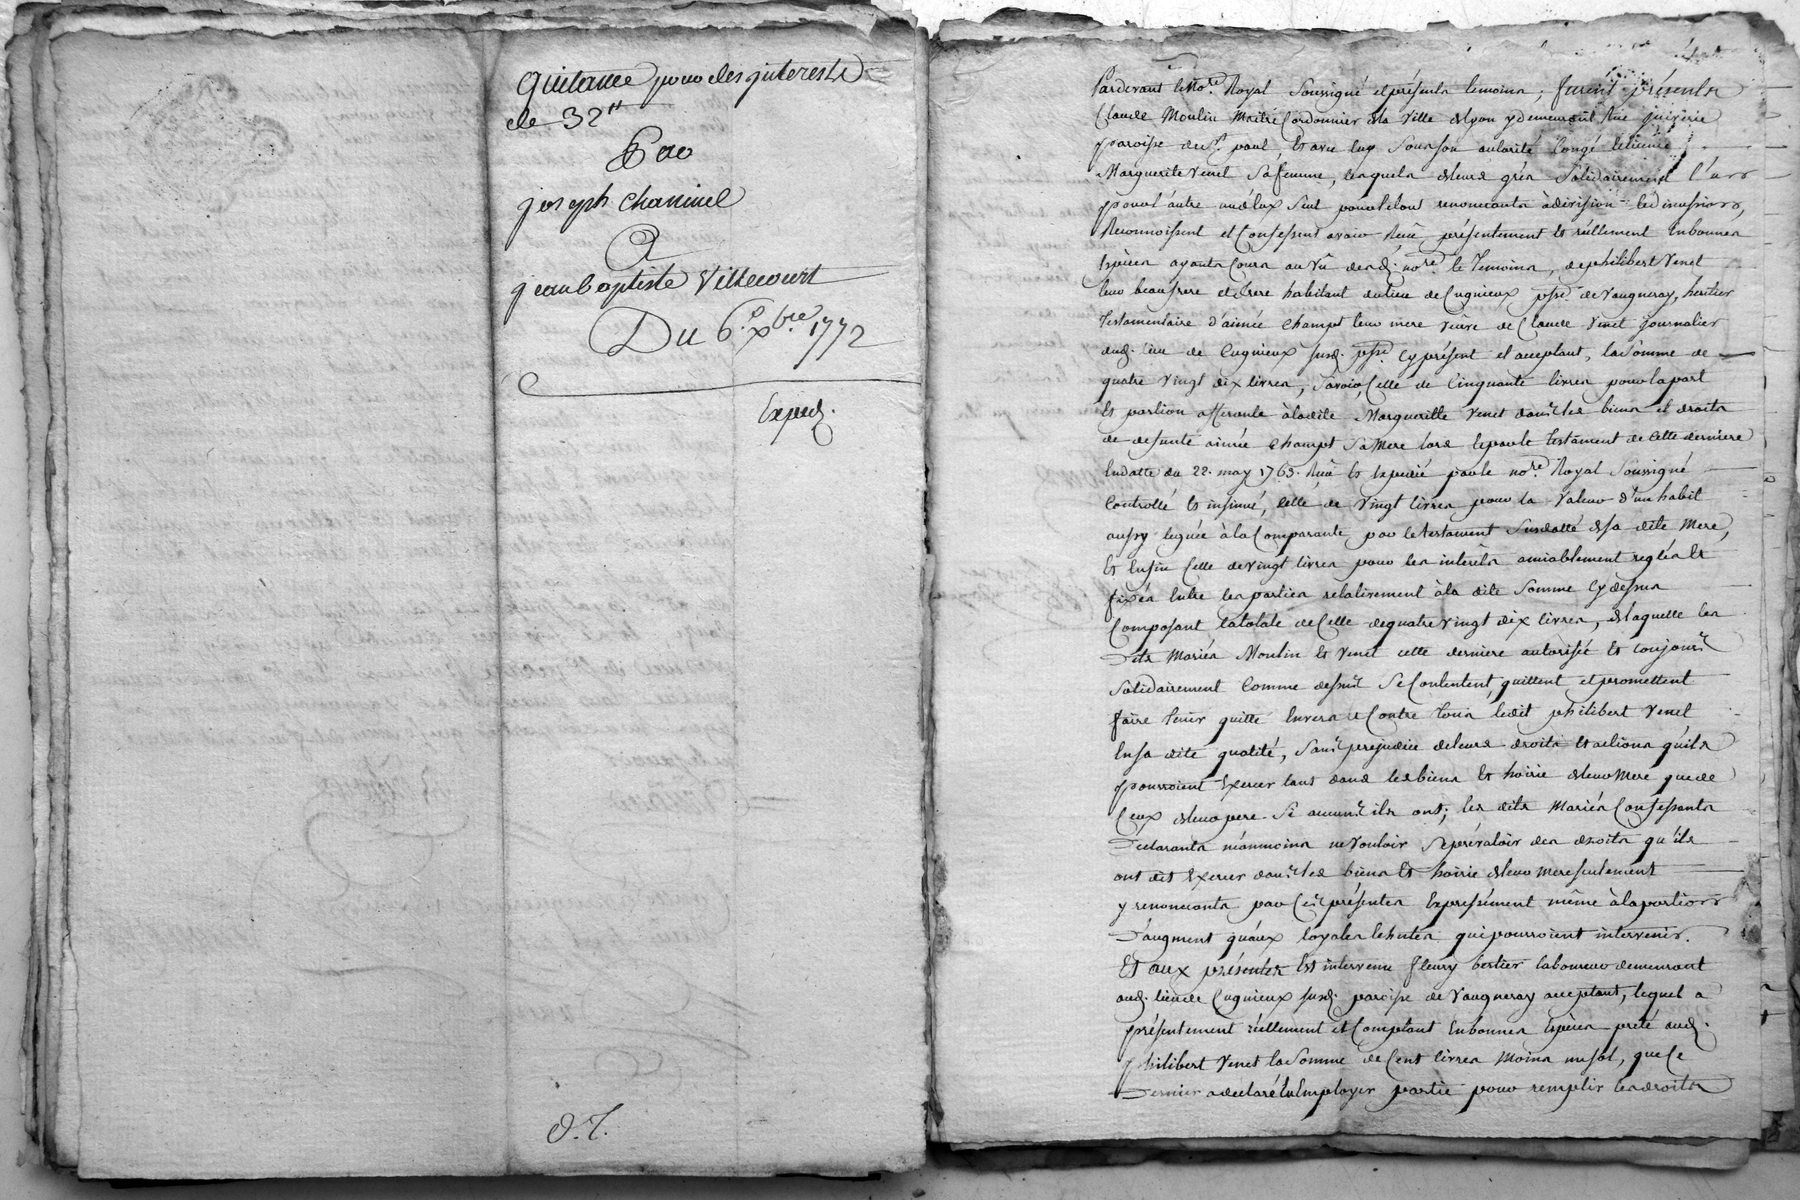 Quitance pour des jnterests
de 32 ʰ
Par
joseph Chaninel
A
jean baptiste Villecourt
Du 6.e xbre 1772
Exped.
d. T.
Pardevant le No.re Royal soussigné et présents temoins, furent présents
Claude Moulin Maitre Cordonnier de la ville de Lyon y demeurant Rue juiverie
paroisse de St. paul, Et avec luy sous son autorité Congé licence
Marguerite Venet sa femme, lesquels de leurs grés solidairement l'un
pour l'autre un d'eux seul pour le tout renonceants à division et discussions,
Reconnoissent et Confessent avoir Reçu présentement Et réellement En bonnes
Espèces ayants Cours au vû dud. no.re Et Temoins, de philibert Venet
leur beaufrere et frere habitant du lieu de Cugnieux psse de Vaugneray, heritier
testamentaire d'aimée Champet leur mere veuve de Claude Venet journalier
dud. lieu de Cugnieux susd. psse Cy présent et acceptant, la somme de
quatre vingt dix livres, savoir, Celle de Cinquante livres pour la part
Et portion afferante à la dite Marguerite Venet dans les biens et droits
de defunte aimée Champet sa Mere leguée par le testament de cette derniere
En datte du 22. may 1763. Reçu Et Expedié par le no.re Royal soussigné
Controllé Et insinué, Celle de vingt livres pour la valeur d'un habit
aussy leguée à la Comparante par le testament susdatté de sa dite Mere,
Et Enfin Celle de vingt livres pour les intérêts amiablement reglés Et
fixés Entre les parties relativement à la dite somme Cy dessus
Composant la totale de Celle de quatre vingt dix livres, de laquelle les
dits Mariés Moulin Et Venet cette derniere autorisée Et toujours
solidairement Comme dessus se Contentent, quittent et promettent
faire tenir quitte Envers Et Contre tous ledit philibert Venet
En sa dite qualité, sans prejudice de leurs droits Et actions qu'ils
pourroient Exercer tant dans les biens Et hoirie de leur Mere que de
Ceux de leur pere si aucuns ils ont; les dits Mariés Confessants
Déclarants néanmoins ne vouloir se prévaloir des droits qu'ils
ont dit Exercer dans les biens Et hoirie de leur mere seulement
y renonceants par Ces présentes Expressément même à la portion
d'augment qu'aux loyales échutes qui pourroient intervenir.
Et aux présentes Est intervenu fleury bertier laboureur demeurant
aud. lieu de Cugnieux susd. paroisse de Vaugneray acceptant, lequel a
présentement réellement et Comptant En bonnes Espèces preté aud.
philibert Venet la somme de Cent livres moins un sol, que Ce
Dernier a declaré En Employer partie pour remplir les droits